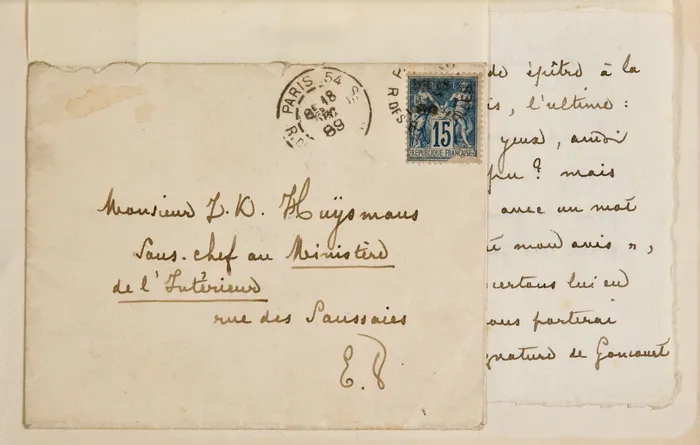 PARIS 54
18
89
R. DES
15
REPUBLIQUE FRANÇAISE
Monsieur J. K. Huÿsmans
Sous-chef au Ministère
de l'Intérieur
rue des Saussaies
E. V
de épître à la
is, l'ultime :
yeux, aussi
? mais
avec un mot
té mon avis »,
certons lui en
ous porterai
gnature de Goncourt